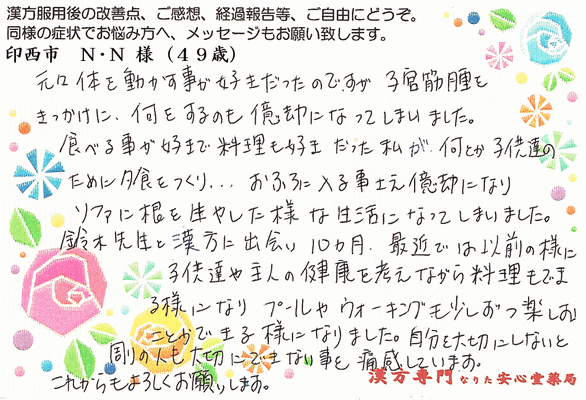 漢方服用後の改善点、ご感想、経過報告等、ご自由にどうぞ。
同様の症状でお悩み方へ、メッセージもお願い致します。
印西市　N・N 様（４９歳）
元々体を動かす事が好きだったのですが 子宮筋腫を
きっかけに、何をするのも億劫になってしまいました。
食べる事が好きで料理も好きだった私が、何とか子供達の
ために夕食をつくり... おふろに入る事さえ億劫になり
ソファに根を生やした様な生活になってしまいました。
鈴木先生と漢方に出会い 10ヵ月、最近では以前の様に
子供達や主人の健康を考えながら料理もでき
る様になり プールやウォーキングも少しずつ楽しむ
ことができる様になりました。自分を大切にしないと
周りの人も大切にできない事を痛感しています。
これからもよろしくお願いします。
漢方専門 なりた安心堂薬局